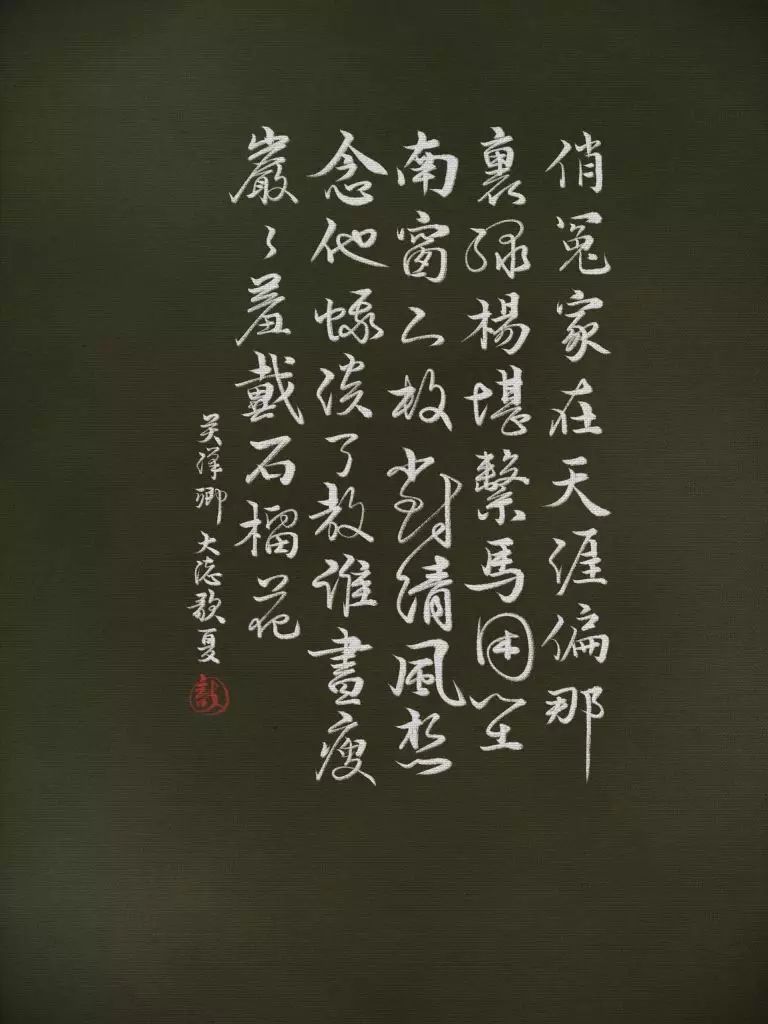 俏冤家在天涯偏那
裏綠楊堪繫馬困坐
南窗下数對清風想
念他蛾淡了教誰畫瘦
巖々羞戴石榴花
关漢卿 大德歌夏